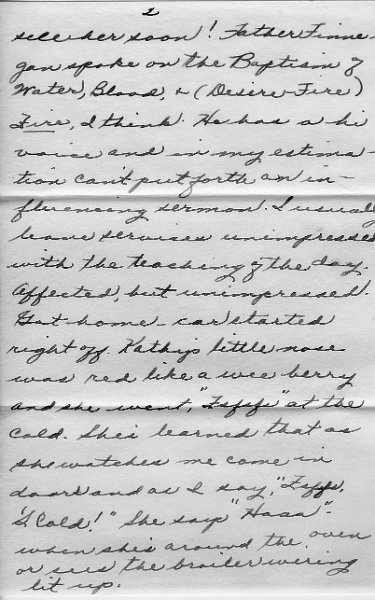 2
see her soon! Father Finne-
gan spoke on the Baptism of
Water, Blood, & (Desire-Fire)
Fire, I think. He has a hi
voice and in my estima-
tion can't put forth an in-
fluencing sermon. I usually
leave services unimpressed
with the teaching of the day.
Affected, but unimpressed.
Got home - car started
right off. Kathy's little nose
was red like a wee berry
and she went, "Fsfsfs" at the
cold. She's learned that as
she watches me come in
doors and as I say, "Fsfsfs,
'S Cold!" She says "Haaa".
when she's around the oven
or sees the broiler wiring
lit up.